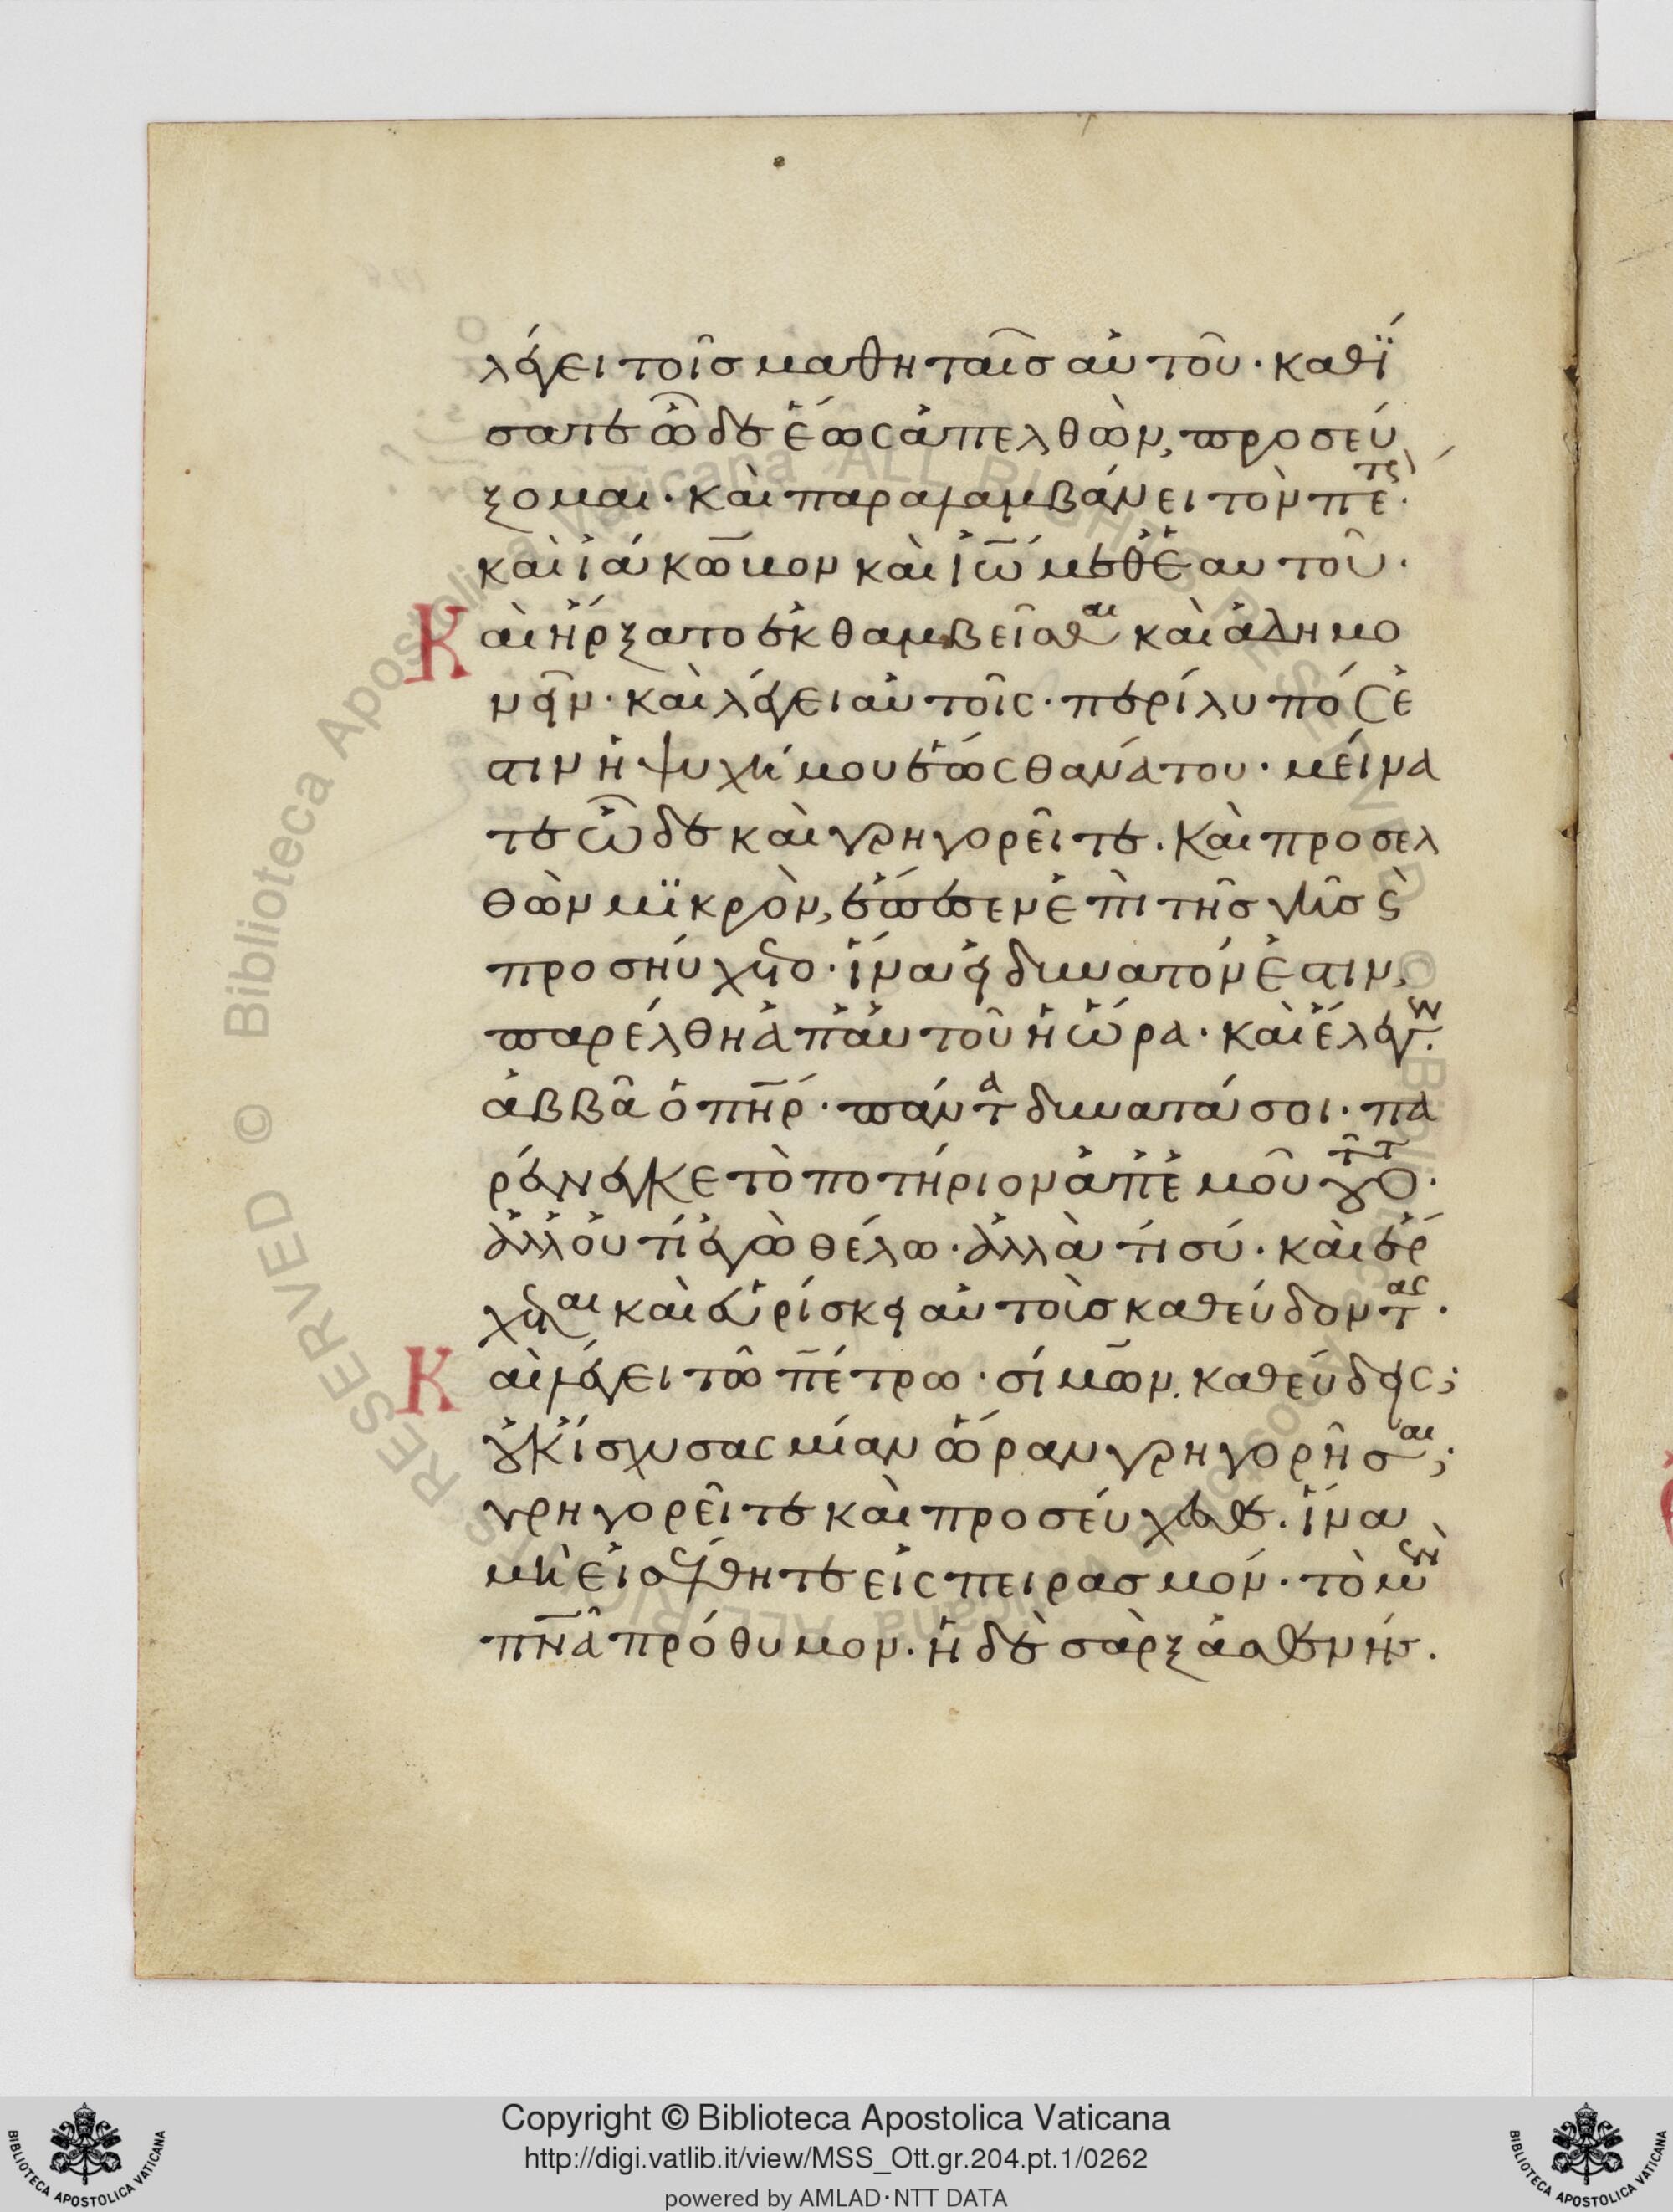 λέγει τοῖσ μαθηταῖσ αὐτοῦ· καθί
σατε ὧδε ἕως ἀπελθὼν, προσεύ
ξομαι· καὶ παραλαμβάνει τὸν πέτρ·
καὶ ϊάκωβον καὶ ἰω μεθ ἑαυτοῦ·
Καὶ ἤρξατο ἐκθαμβεῖσθαι καὶ ἀδημο
νεῖν· καὶ λέγει αὐτοῖς· περίλυπός ἐ
στιν ἡ ψυχή μου ἕως θανάτου· μείνα
τε ὧδε καὶ γρηγορεῖτε. Καὶ προσελ
θὼν μϊκρὸν, ἔπεσεν ἐπὶ τῆσ γῆσ ϛ
προσηύχετο· ἵνα εἰ δυνατόν ἐστιν,
παρέλθη ἀπ αὐτοῦ ἡ ὥρα· καὶ ἔλεγεν·
ἀββᾶ ὁ πηρ· πάντα δυνατά σοι· πα
ρένεγκε τὸ ποτήριον ἀπ ἐμοῦ τοῦτο·
ἀλλ οὐ τί ἐγὼ θέλω· ἀλλὰ τί σύ· καὶ ἔρ
χεται καὶ εὑρίσκει αὐτοὺσ καθεύδοντας·
Καὶ λέγει τῶ πέτρω· σίμων, καθεύδεις;
οὐκ ἴσχυσας μίαν ὥραν γρηγορῆσαι;
γρηγορεῖτε καὶ προσεύχεσθε. ἵνα
μὴ εἰσέλθητε εἰς πειρασμόν· τὸ μὲν
πνα πρόθυμον. ἡ δὲ σὰρξ ἀσθενής.
Copyright © Biblioteca Apostolica Vaticana
http://digi.vatlib.it/view/MSS_Ott.gr.204.pt.1/0262
powered by AMLAD·NTT DATA
BIBLIOTECA APOSTOLICA VATICANA
BIBLIOTECA APOSTOLICA VATICANA